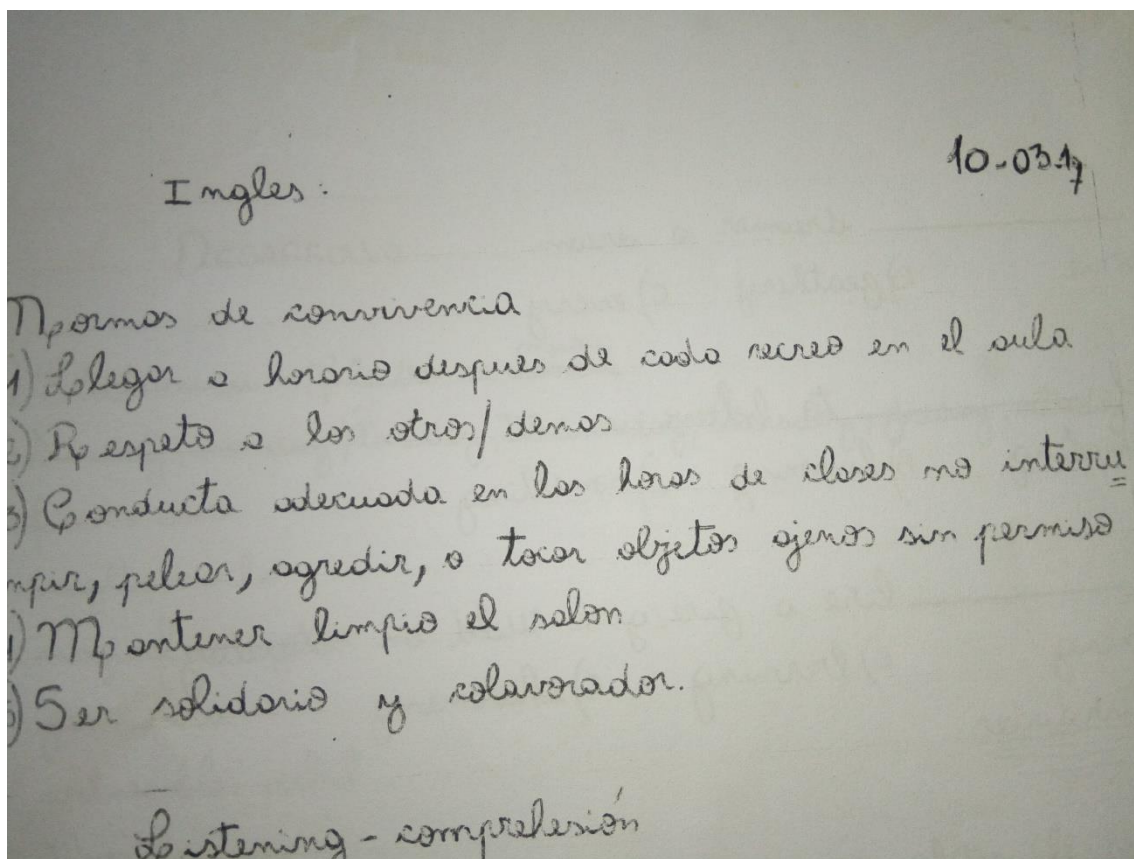 10-03-17
Ingles:
Normas de convivencia
1) Llegar a horario despues de cada recreo en el aula
2) Respeto a los otros/demas
3) Conducta adecuada en las horas de clases no interru
mpir, pelear, agredir, o tocar objetos ajenos sin permiso
4) Mantener limpio el salon
5) Ser solidario y colavorador.
Listening-comprehesión